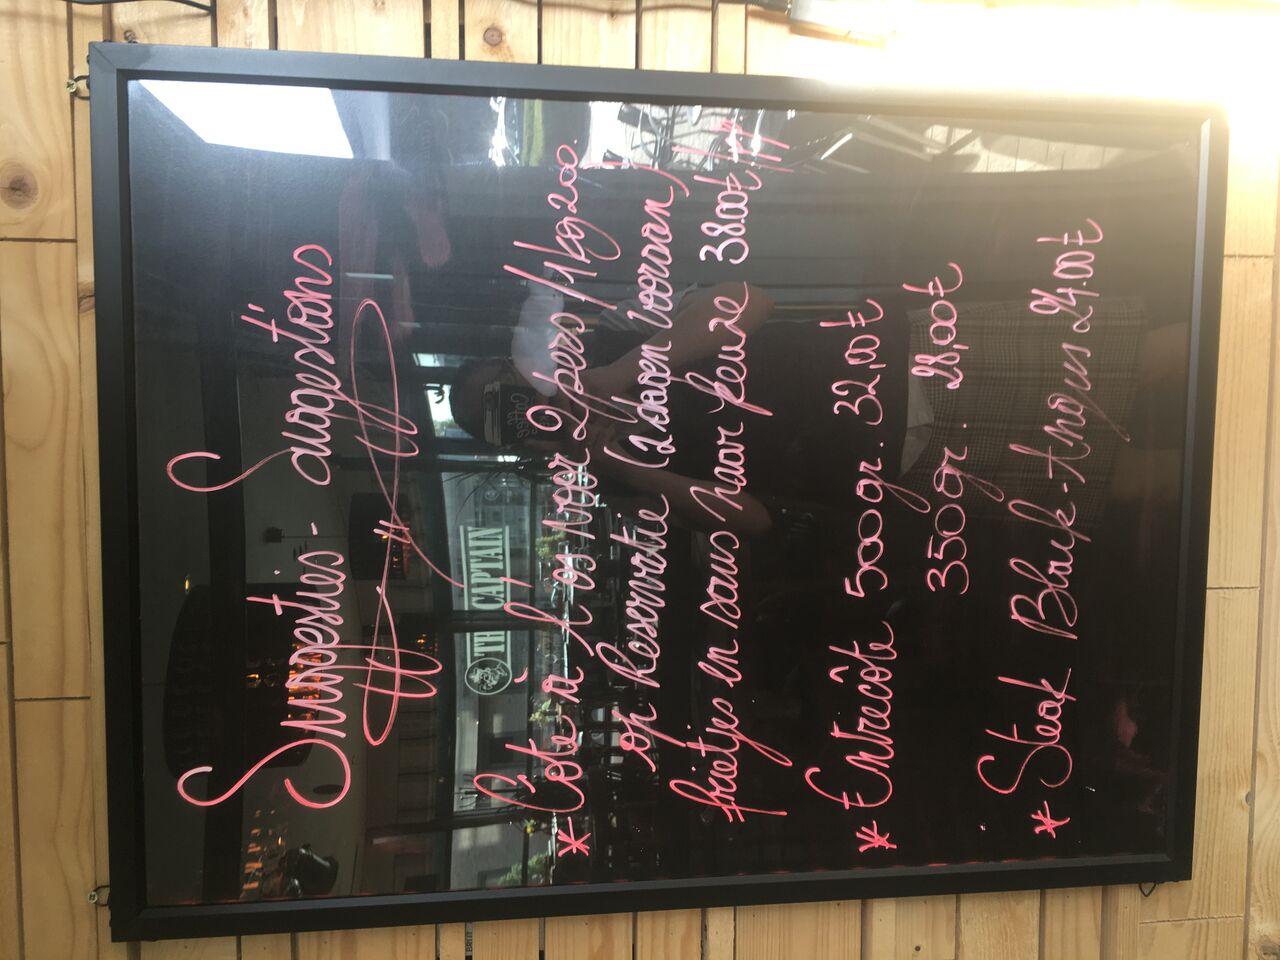 Suggesties - Suggestions
* Côte à l'os voor 2 pers 1kg200.
op Reservatie (2 dagen vooraan)
frietjes en saus naar keuze 38.00€ !!!
* Entrecôte 500gr. 32,00€
350gr. 28,00€
* Steak Black-Angus 24.00€
THE CAPTAIN